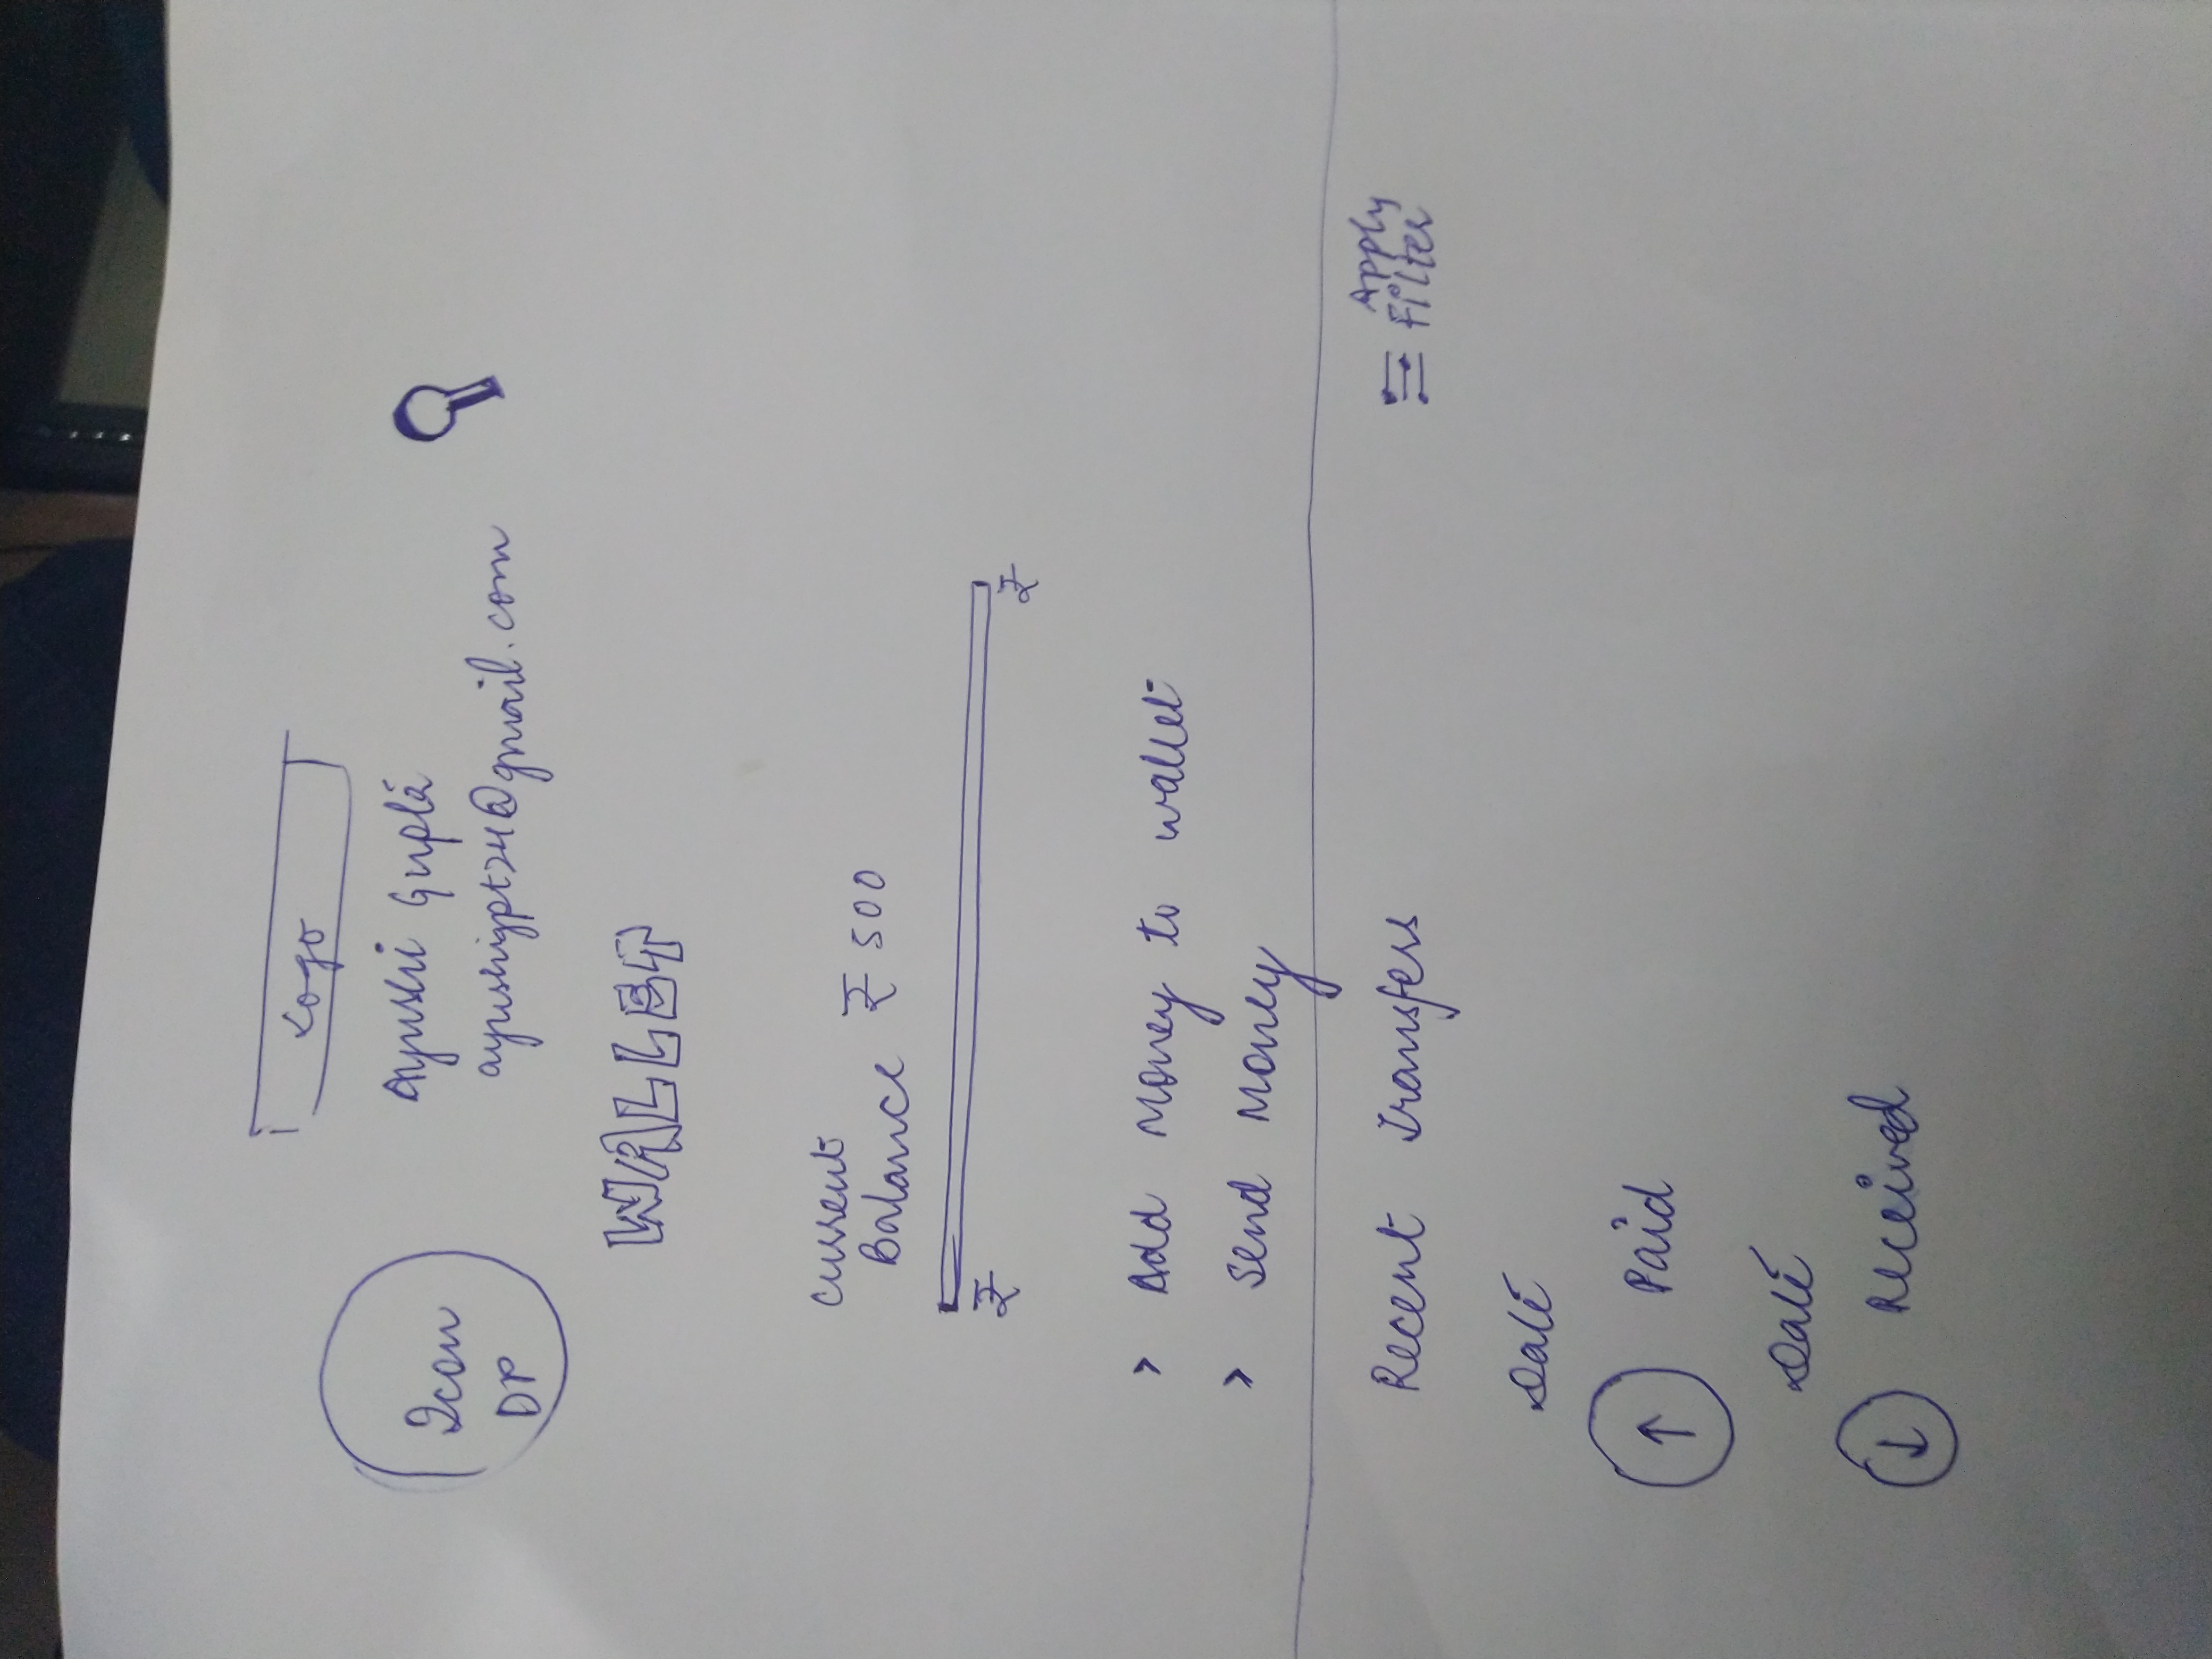 Logo
Ayushi Gupta
Icon
DP
WALLET
Current
Balance ₹ 500
₹ ₹
> Add money to wallet
> Send money
Recent Transfers
Apply
Filter
Date
↑ Paid
Date
↓ Received